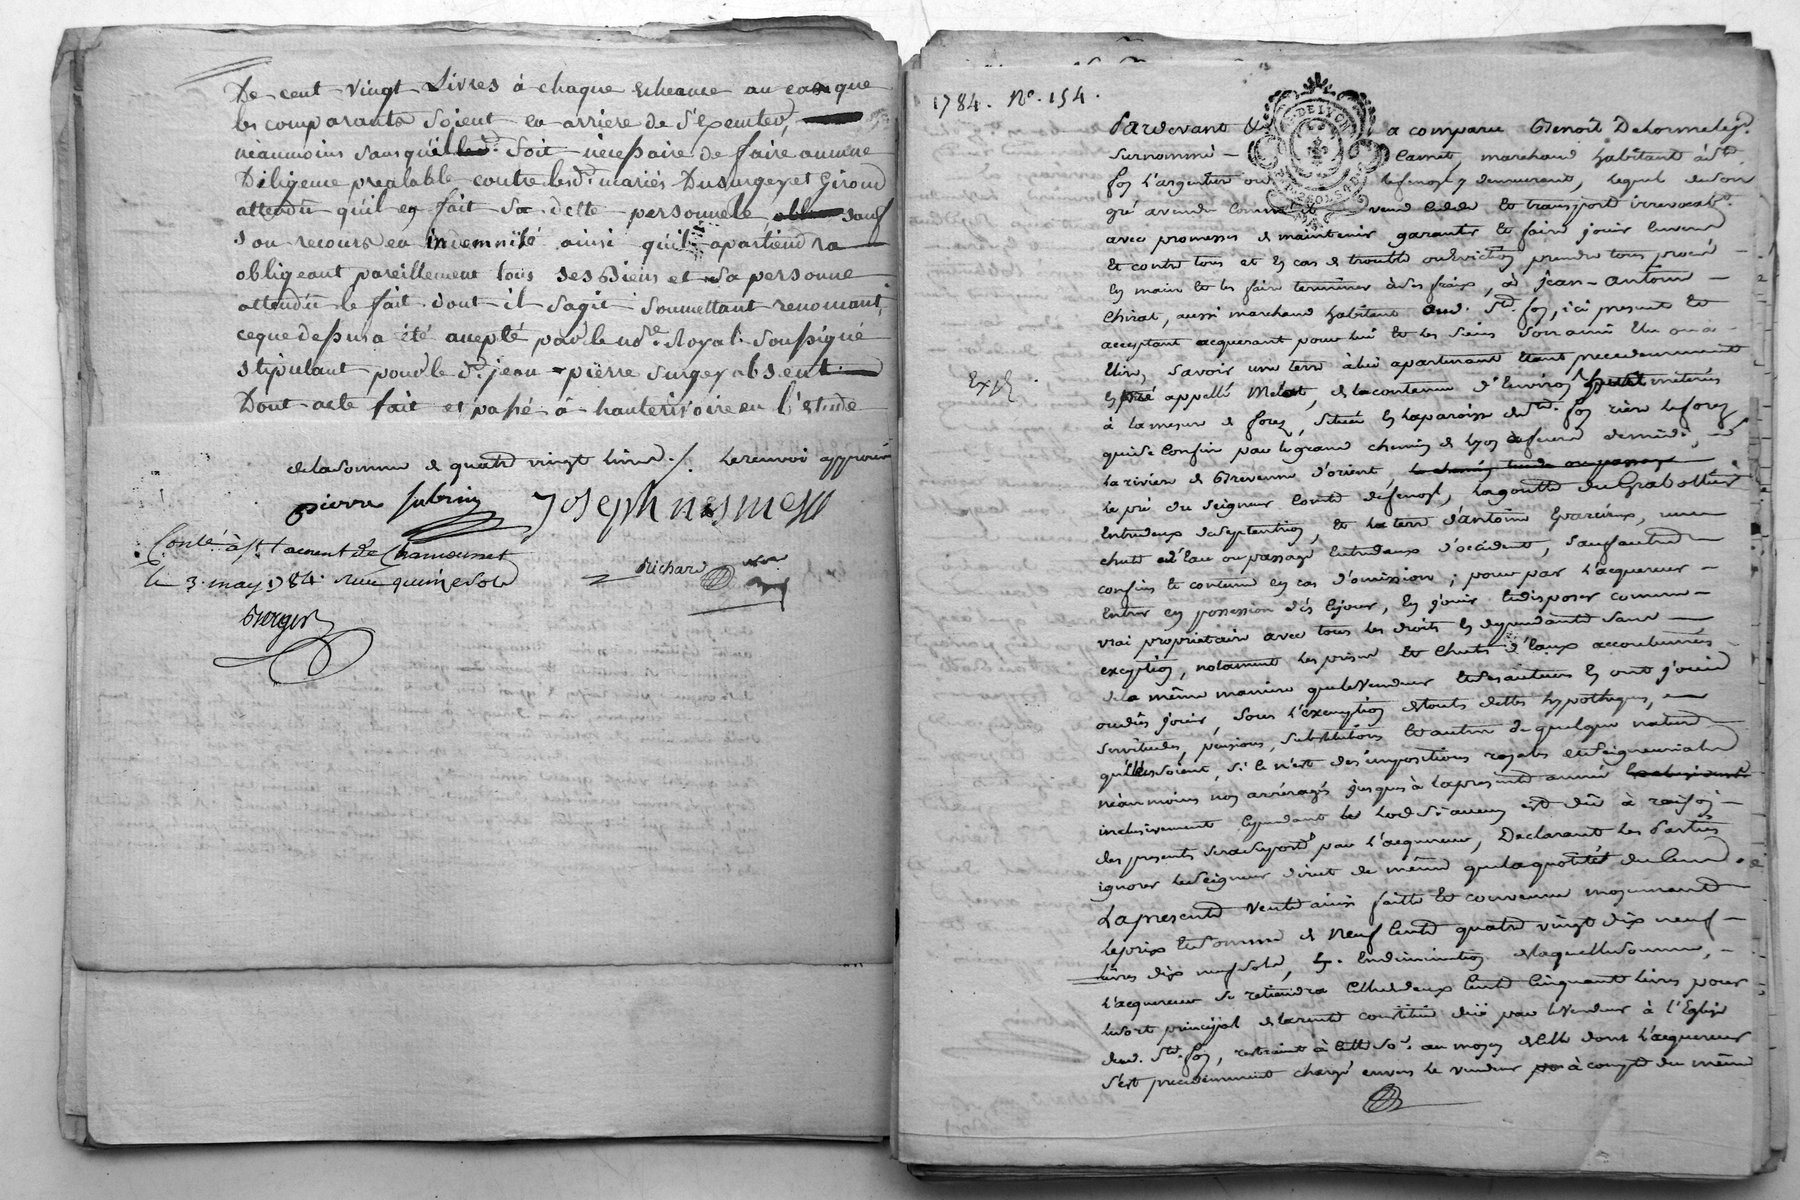 De cent vingt Livres à chaque echeance au cas que
les comparants soient en arriere de s'exemter,
néanmoins sans qu'il soit necessaire de faire aucune
Diligence prealable contre lesd. mariés Dusurgey et Giroud
attendu qu'il en fait sa dette personnele sauf
son recours en indemnité ainsi qu'il apartiendra
obligeant pareillement tous ses Biens et sa personne
attendu le fait dont il sagit soumettant renonçant,
ce que dessus a été accepté par le no.re Royal soussigné
stipulant pour le d. jean-pierre surgey absent
Dont acte fait et passé à hauterivoire en l'étude
de la somme de quatre vingt livres ./. Le renvoi approuvé
pierre Subrin Joseph nesmes
Conlé à St Laurent de Chamousset
le 3 may 1784. reçu quinze sols
Richard
Berger
1784. No. 154.
DE LYON
Pardevant a comparu Benoît Delorme
surnommé Carret marchand habitant à Ste
foy l'argentiere demeurant, lequel de son
gré a vendu comme il vend cede et transporte irrevocab.
avec promesses de maintenir garantir et faire jouir envers
et contre tous et en cas de trouble ou eviction prendre tous procès
en main et les faire terminer à ses fraix, à Jean-Antoine
Chirat, aussi marchand habitant aud. Ste foy, ici present et
acceptant acquerant pour lui et les siens son ami elu ou à
elire, savoir une terre à lui apartenant étant precedemment
Exp.
en pré appellé Melat, de la contenue d'environ meterées
à la mesure de forez, située en la paroisse de Ste foy riere le forez
qui se confine par le grand chemin de Lyon à feurs de midi,
la riviere de Brevenne d'orient,
le pré du seigneur Comte de fenoyl, la goutte du Grabottier
entredeux de septentrion, et la terre d'antoine Garcieux, une
chute d'eau ou passage entredeux d'occident, sauf autres
confins et contenue en cas d'omission; pour par l'acquereur
entrer en possession dès ce jour, en jouir et disposer comme
vrai proprietaire avec tous les droits en dependants sans
exception, notament les prises et chutes d'eaux accoutumées
de la même maniere que le vendeur et ses auteurs en ont joui
ou dû jouir, sous l'exemption de toutes dettes hypotheques,
servitudes, pensions, substitutions et autres de quelque nature
qu'elles soient, si ce n'est des impositions royales et seigneuriales
néanmoins nos arrérages jusques à la presente année
inclusivement cependant les lods si aucun est dû à raison
des presentes sera suporté par l'acquereur, Declarant les Parties
ignorer le seigneur direct de même que la quotité du cens.
La presente vente ainsi faite et convenue moyennant
le prix et somme de neuf cents quatre vingt dix neuf
livres dix neuf sols, en diminution de laquelle somme,
l'acquereur se retiendra celle de deux cent cinquante livres pour
le sort principal de la rente constituée düe par le vendeur à l'Eglise
dud. Ste foy, restraint à cette so.e au moyen de celle dont l'acquereur
s'est precedemment chargé envers le vendeur à compte du même